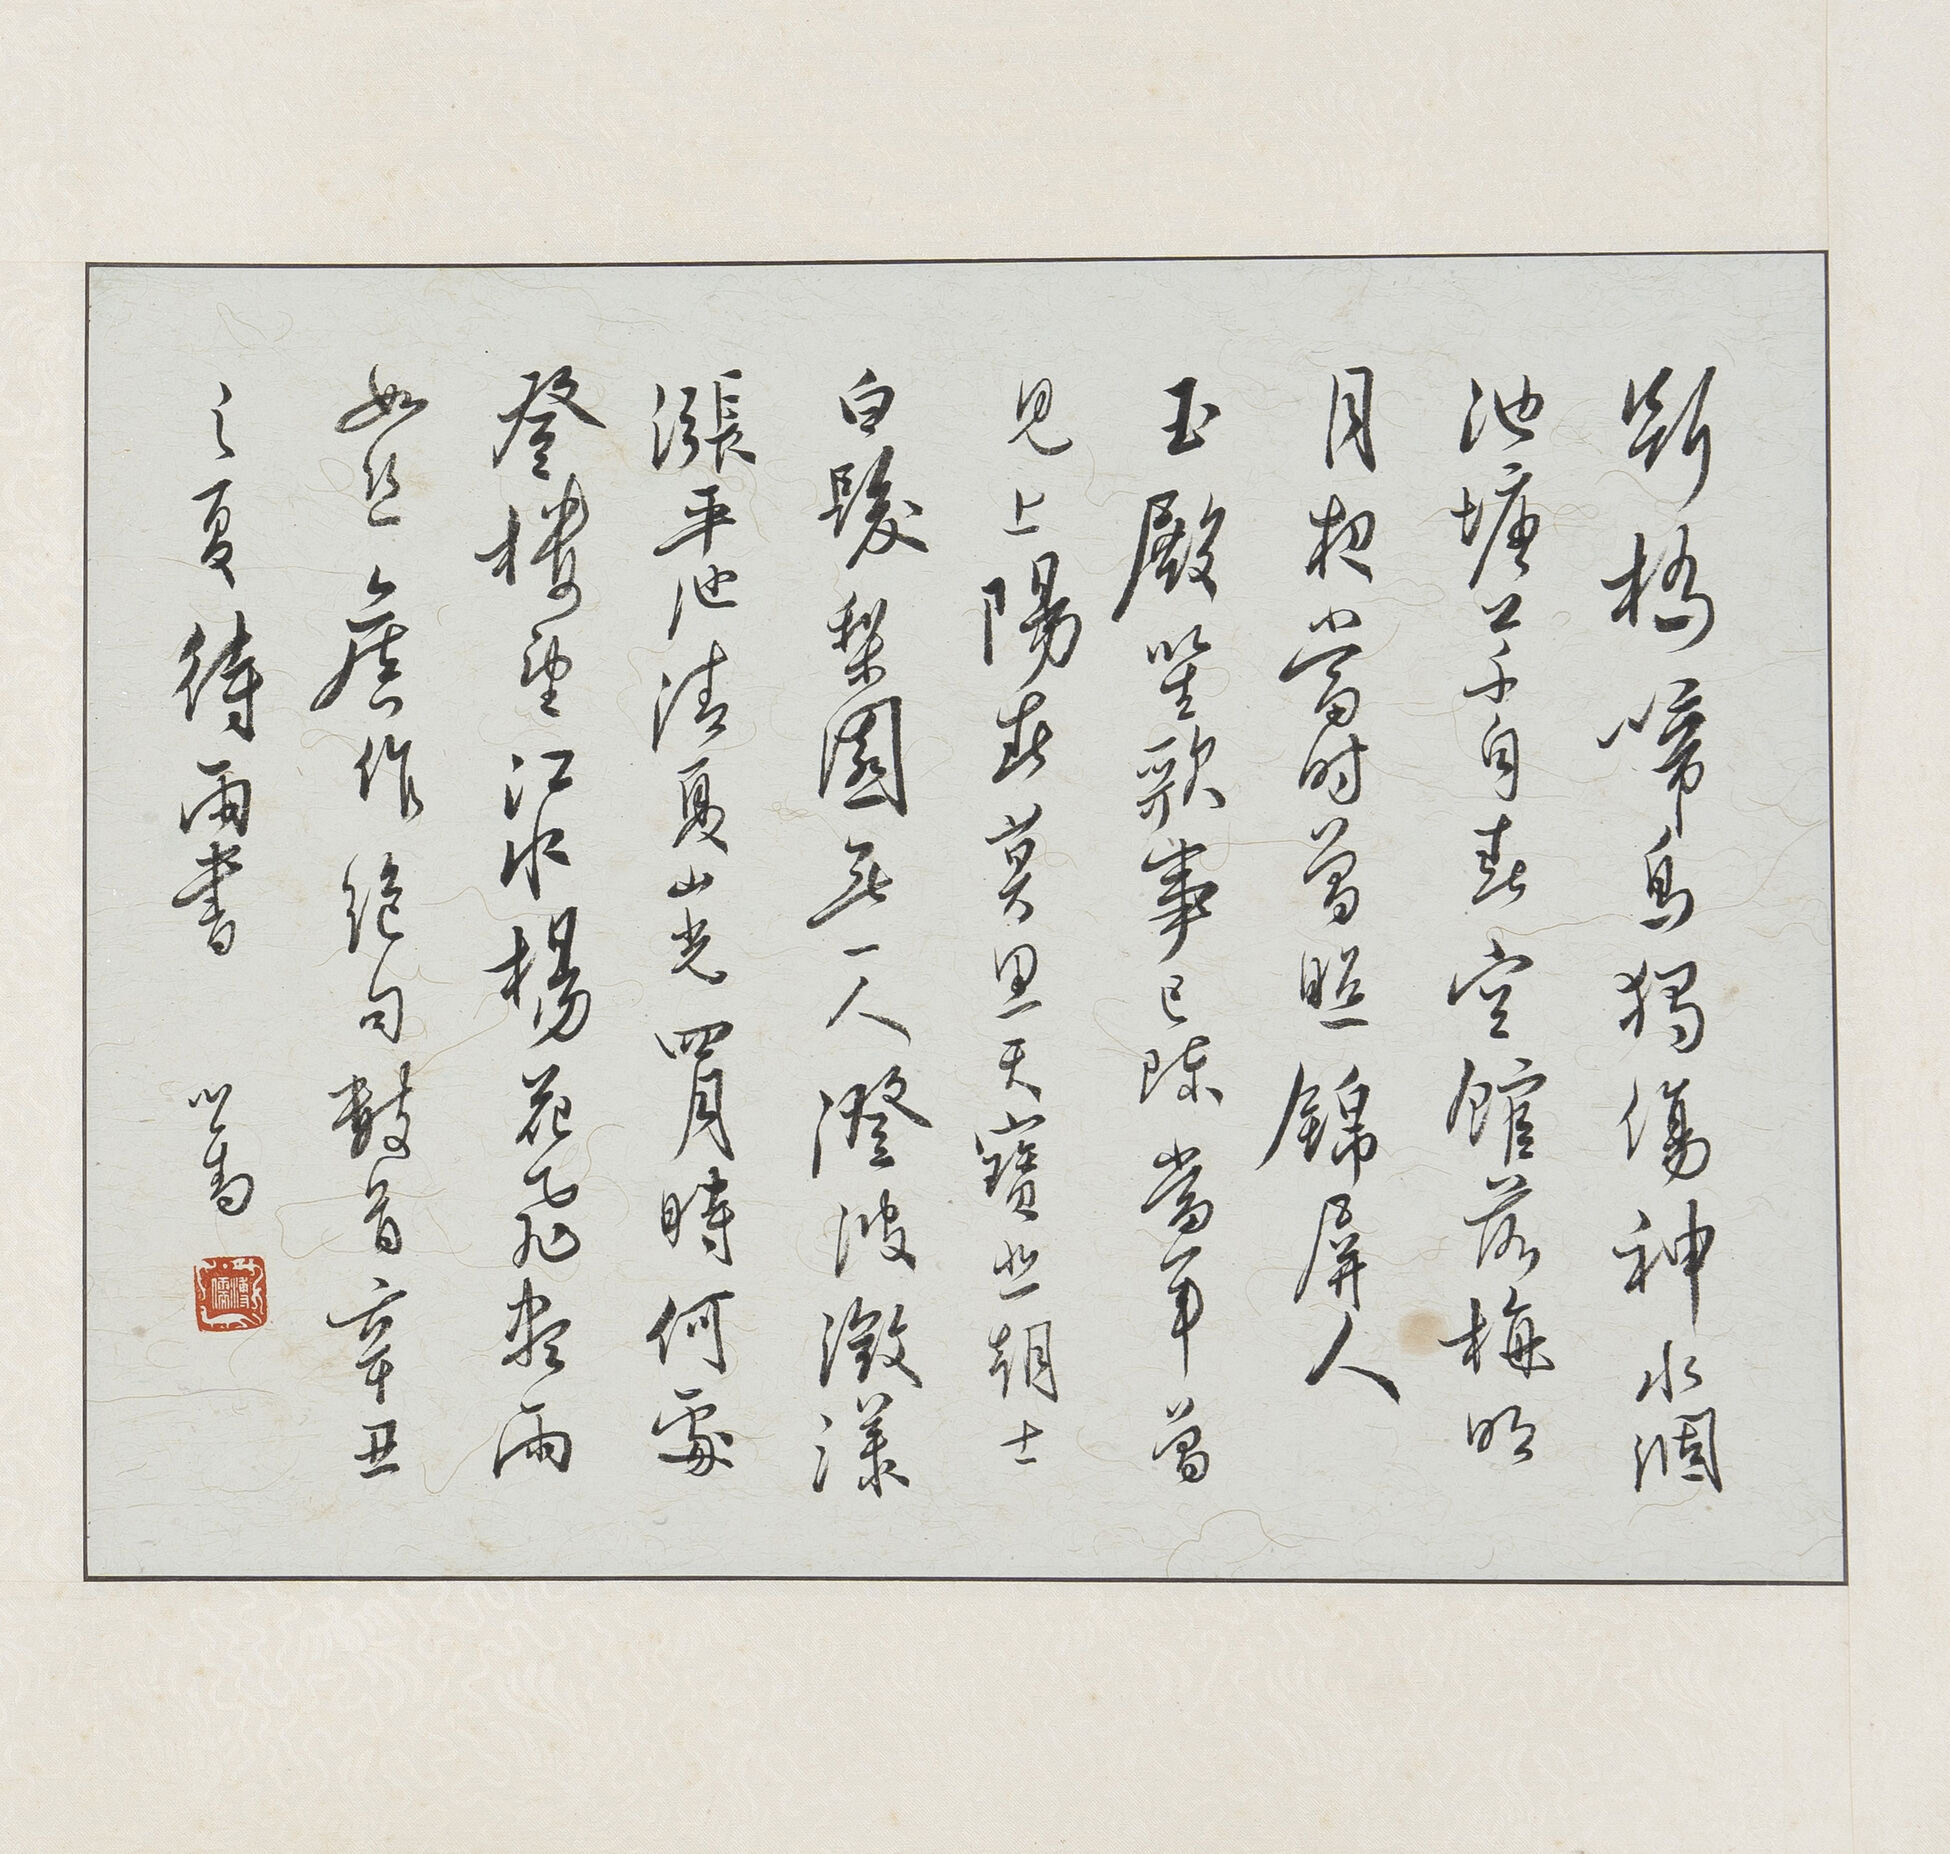 斷橋啼鳥獨傷神水涸
池塘草自春空館落梅明
月夜當時曾照錦屏人
玉殿笙歌事已陳當年曾
見上陽春莫思天寶世朝士
白髮梨園無一人澄波激漾
漲平池清夏山光四月時何處
登樓望江水楊花飛盡雨
如絲舊作絕句數首辛丑
之夏待雨書 心畬
溥儒